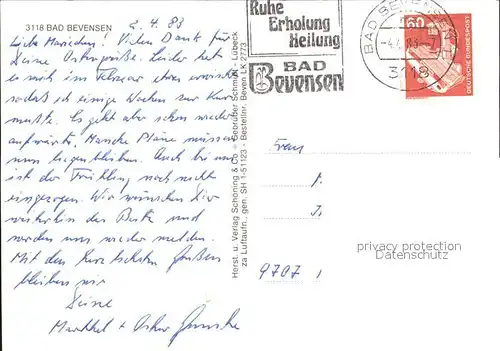 3118 BAD BEVENSEN
2.4.83
Vielen Dank für
Deine Ostergrüße. Leider hat
es mich im Februar etwas erwischt
sodaß ich einige Wochen zur Kur
mußte. Es geht aber schon wieder
aufwärts. Manche Pläne müssen
nun liegenbleiben. Auch bei uns
ist der Frühling noch nicht
eingezogen. Wir wünschen Dir
weiterhin das Beste und
werden uns wieder melden.
Mit den herzlichsten Grüßen
bleiben wir
Deine
+ Oskar
Herst. u. Verlag Schöning & Co + Gebrüder Schmidt - Lübeck
za Luftaufn. gen. SH 1-51123 - Bestellnr. Beven LK 2773
Ruhe
Erholung
Heilung
BAD
Bevensen
BAD BEVENSEN
3118
60
DEUTSCHE BUNDESPOST
Frau
9707
privacy protection
Datenschutz